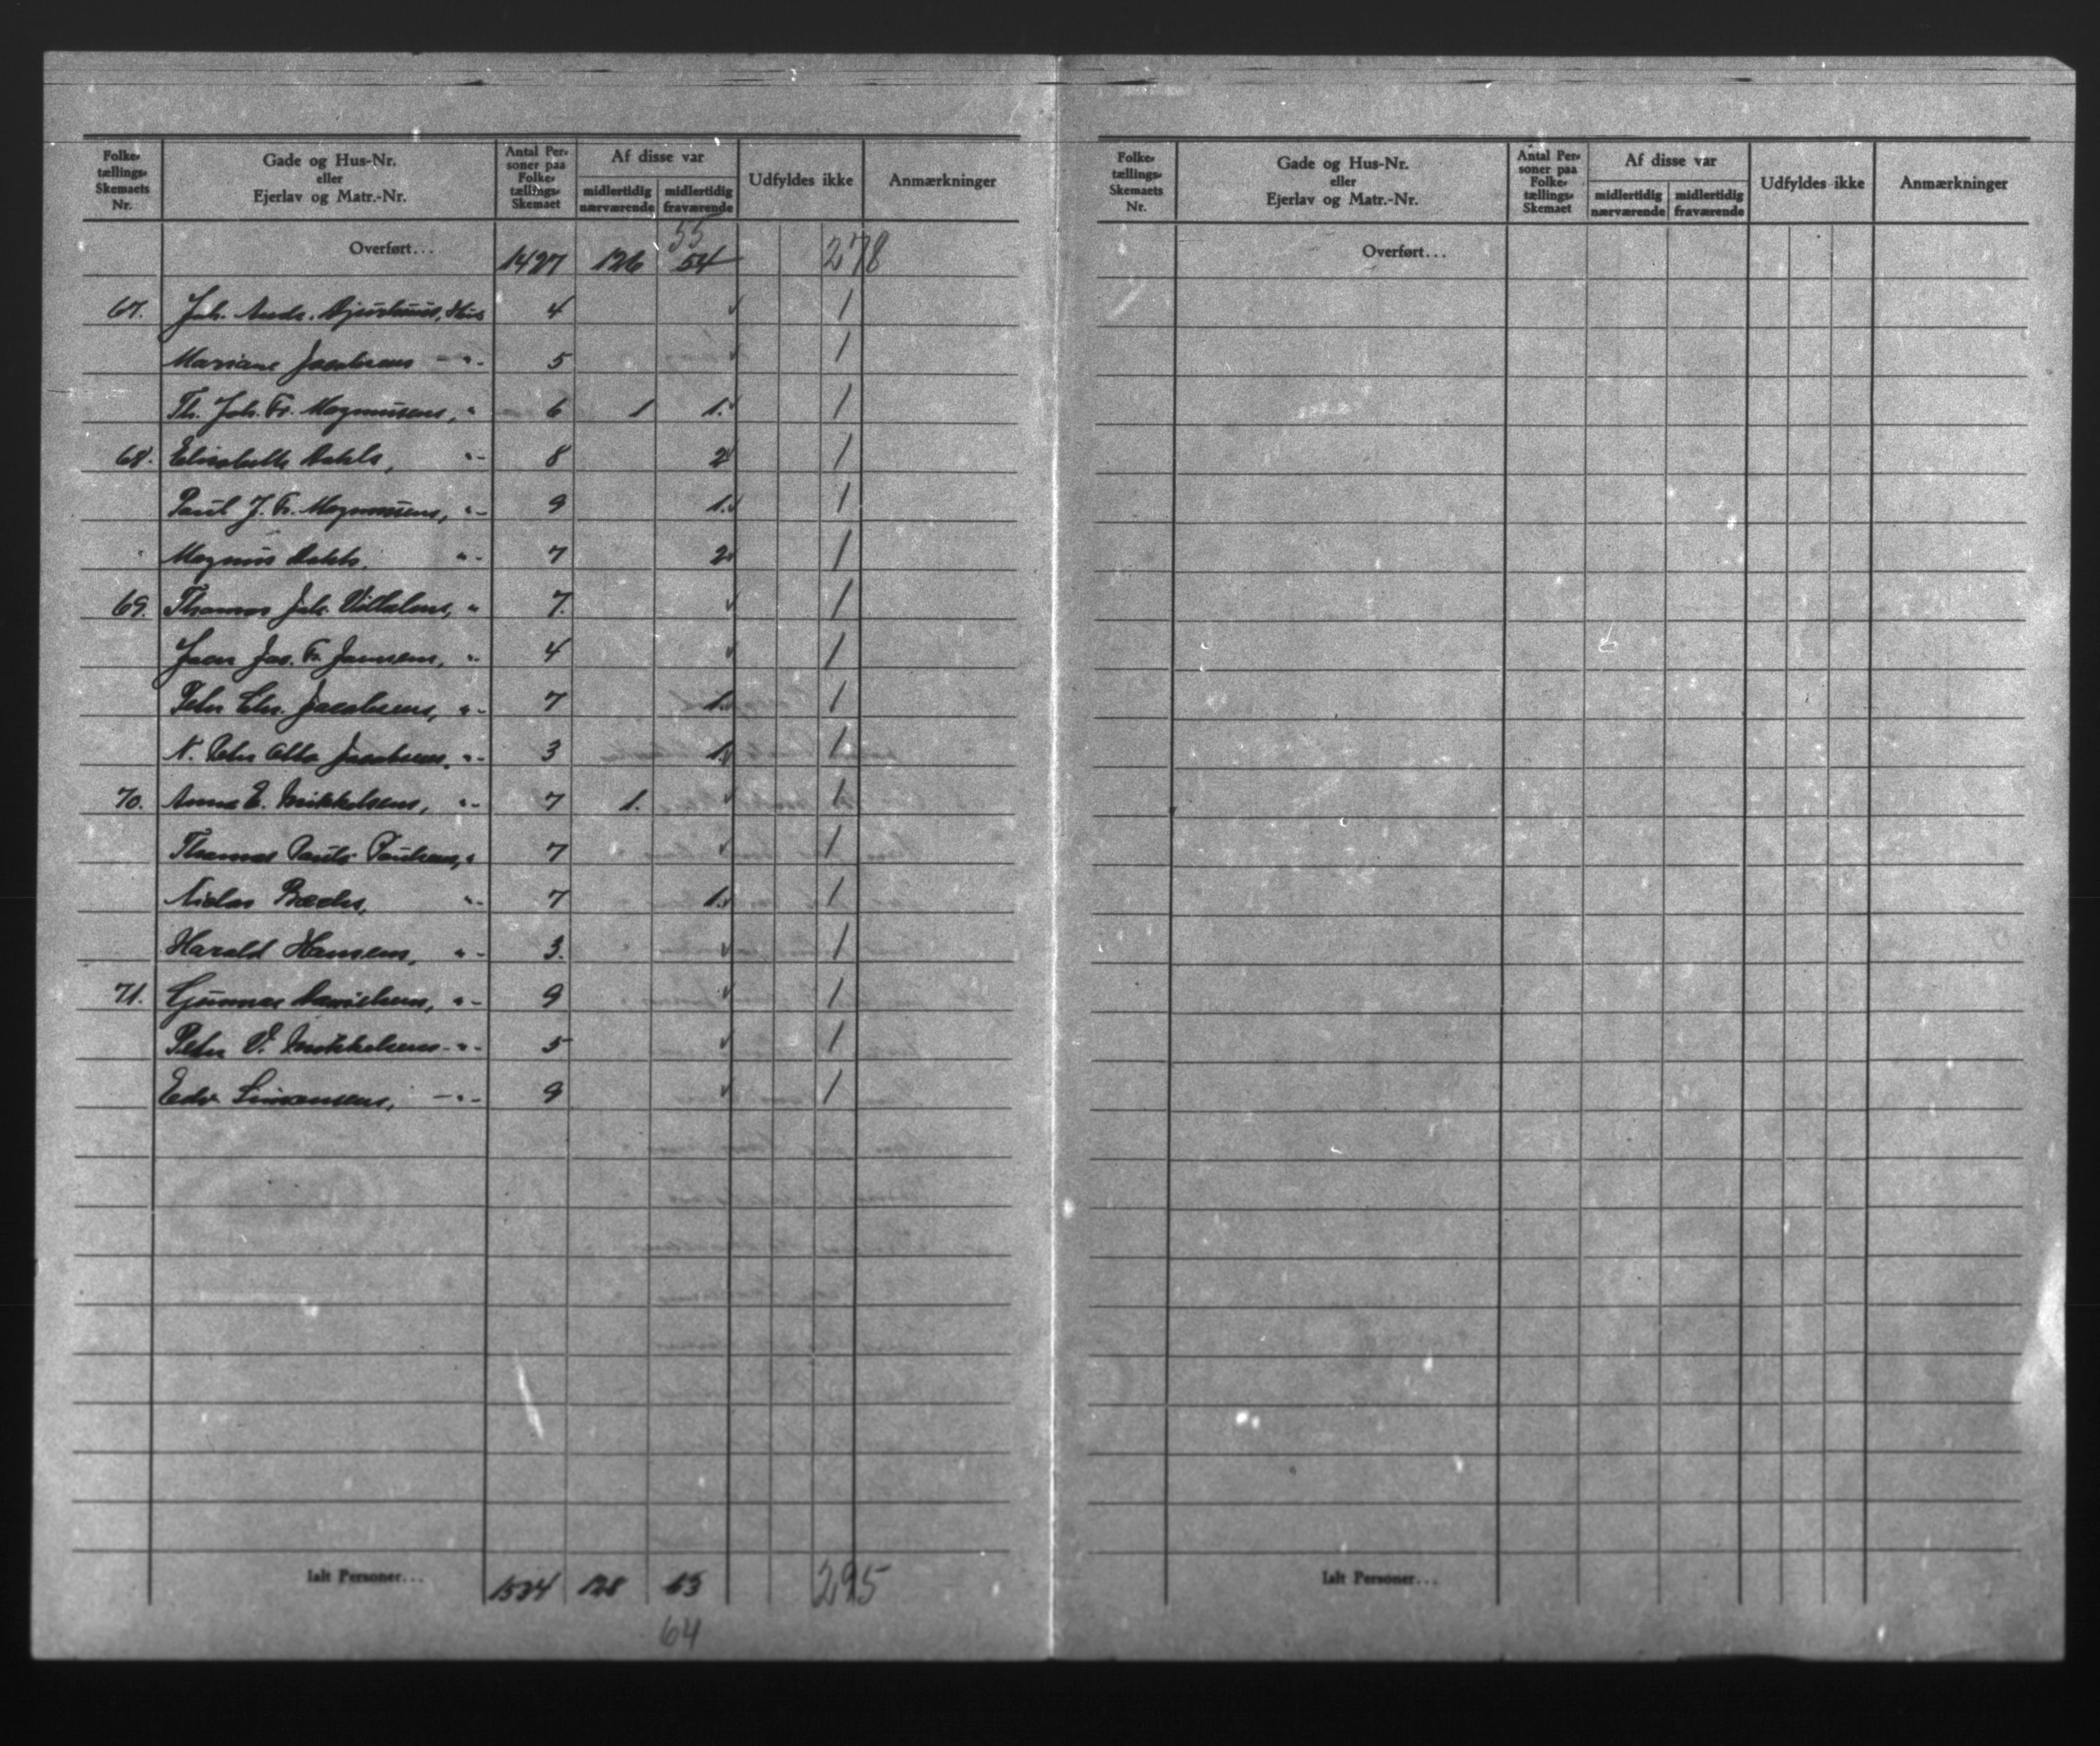 Folke-tællings-Skemaets Nr. | Gade og Hus-Nr. eller Ejerlav og Matr.-Nr. | Antal Per-soner paa Folke-tællings-Skemaet | Af disse var midlertidig nærværende | midlertidig fraværende | Udfyldes ikke | Anmærkninger
55
Overført... 1427 126 54 278
67. Joh. Andr. Hus 4 1
Mariane Jacobsens -"- 5 1
Th. Joh. Fr. Magnussens, " 6 1 1. 1
68. Elisabeth Dahls, "- 8 2 1
Poul J. Fr. Magnussens, "- 9 1. 1
Magnus Dahls. "- 7 2 1
69. Thomas Joh. " 7. 1
Joen Jac. Fr. Joensens, " 4 1
Peter Chr. Jacobsens, "- 7 1. 1
N. Peter Otto Jacobsens, "- 3 1. 1
70. Anna E. Mikkelsens, "- 7 1. 1
Thomas Pauli Poulsens, " 7 1
Niclas "- 7 1. 1
Harald Hansens, "- 3. 1
71. Gunnar Danielsens, "- 9 1
Peter V. Mikkelsens -"- 5 1
Edv. Simonsens, -"- 9 1
Ialt Personer... 1534 128 63 295
64
Folke-tællings-Skemaets Nr. | Gade og Hus-Nr. eller Ejerlav og Matr.-Nr. | Antal Per-soner paa Folke-tællings-Skemaet | Af disse var midlertidig nærværende | midlertidig fraværende | Udfyldes ikke | Anmærkninger
Overført...
Ialt Personer...